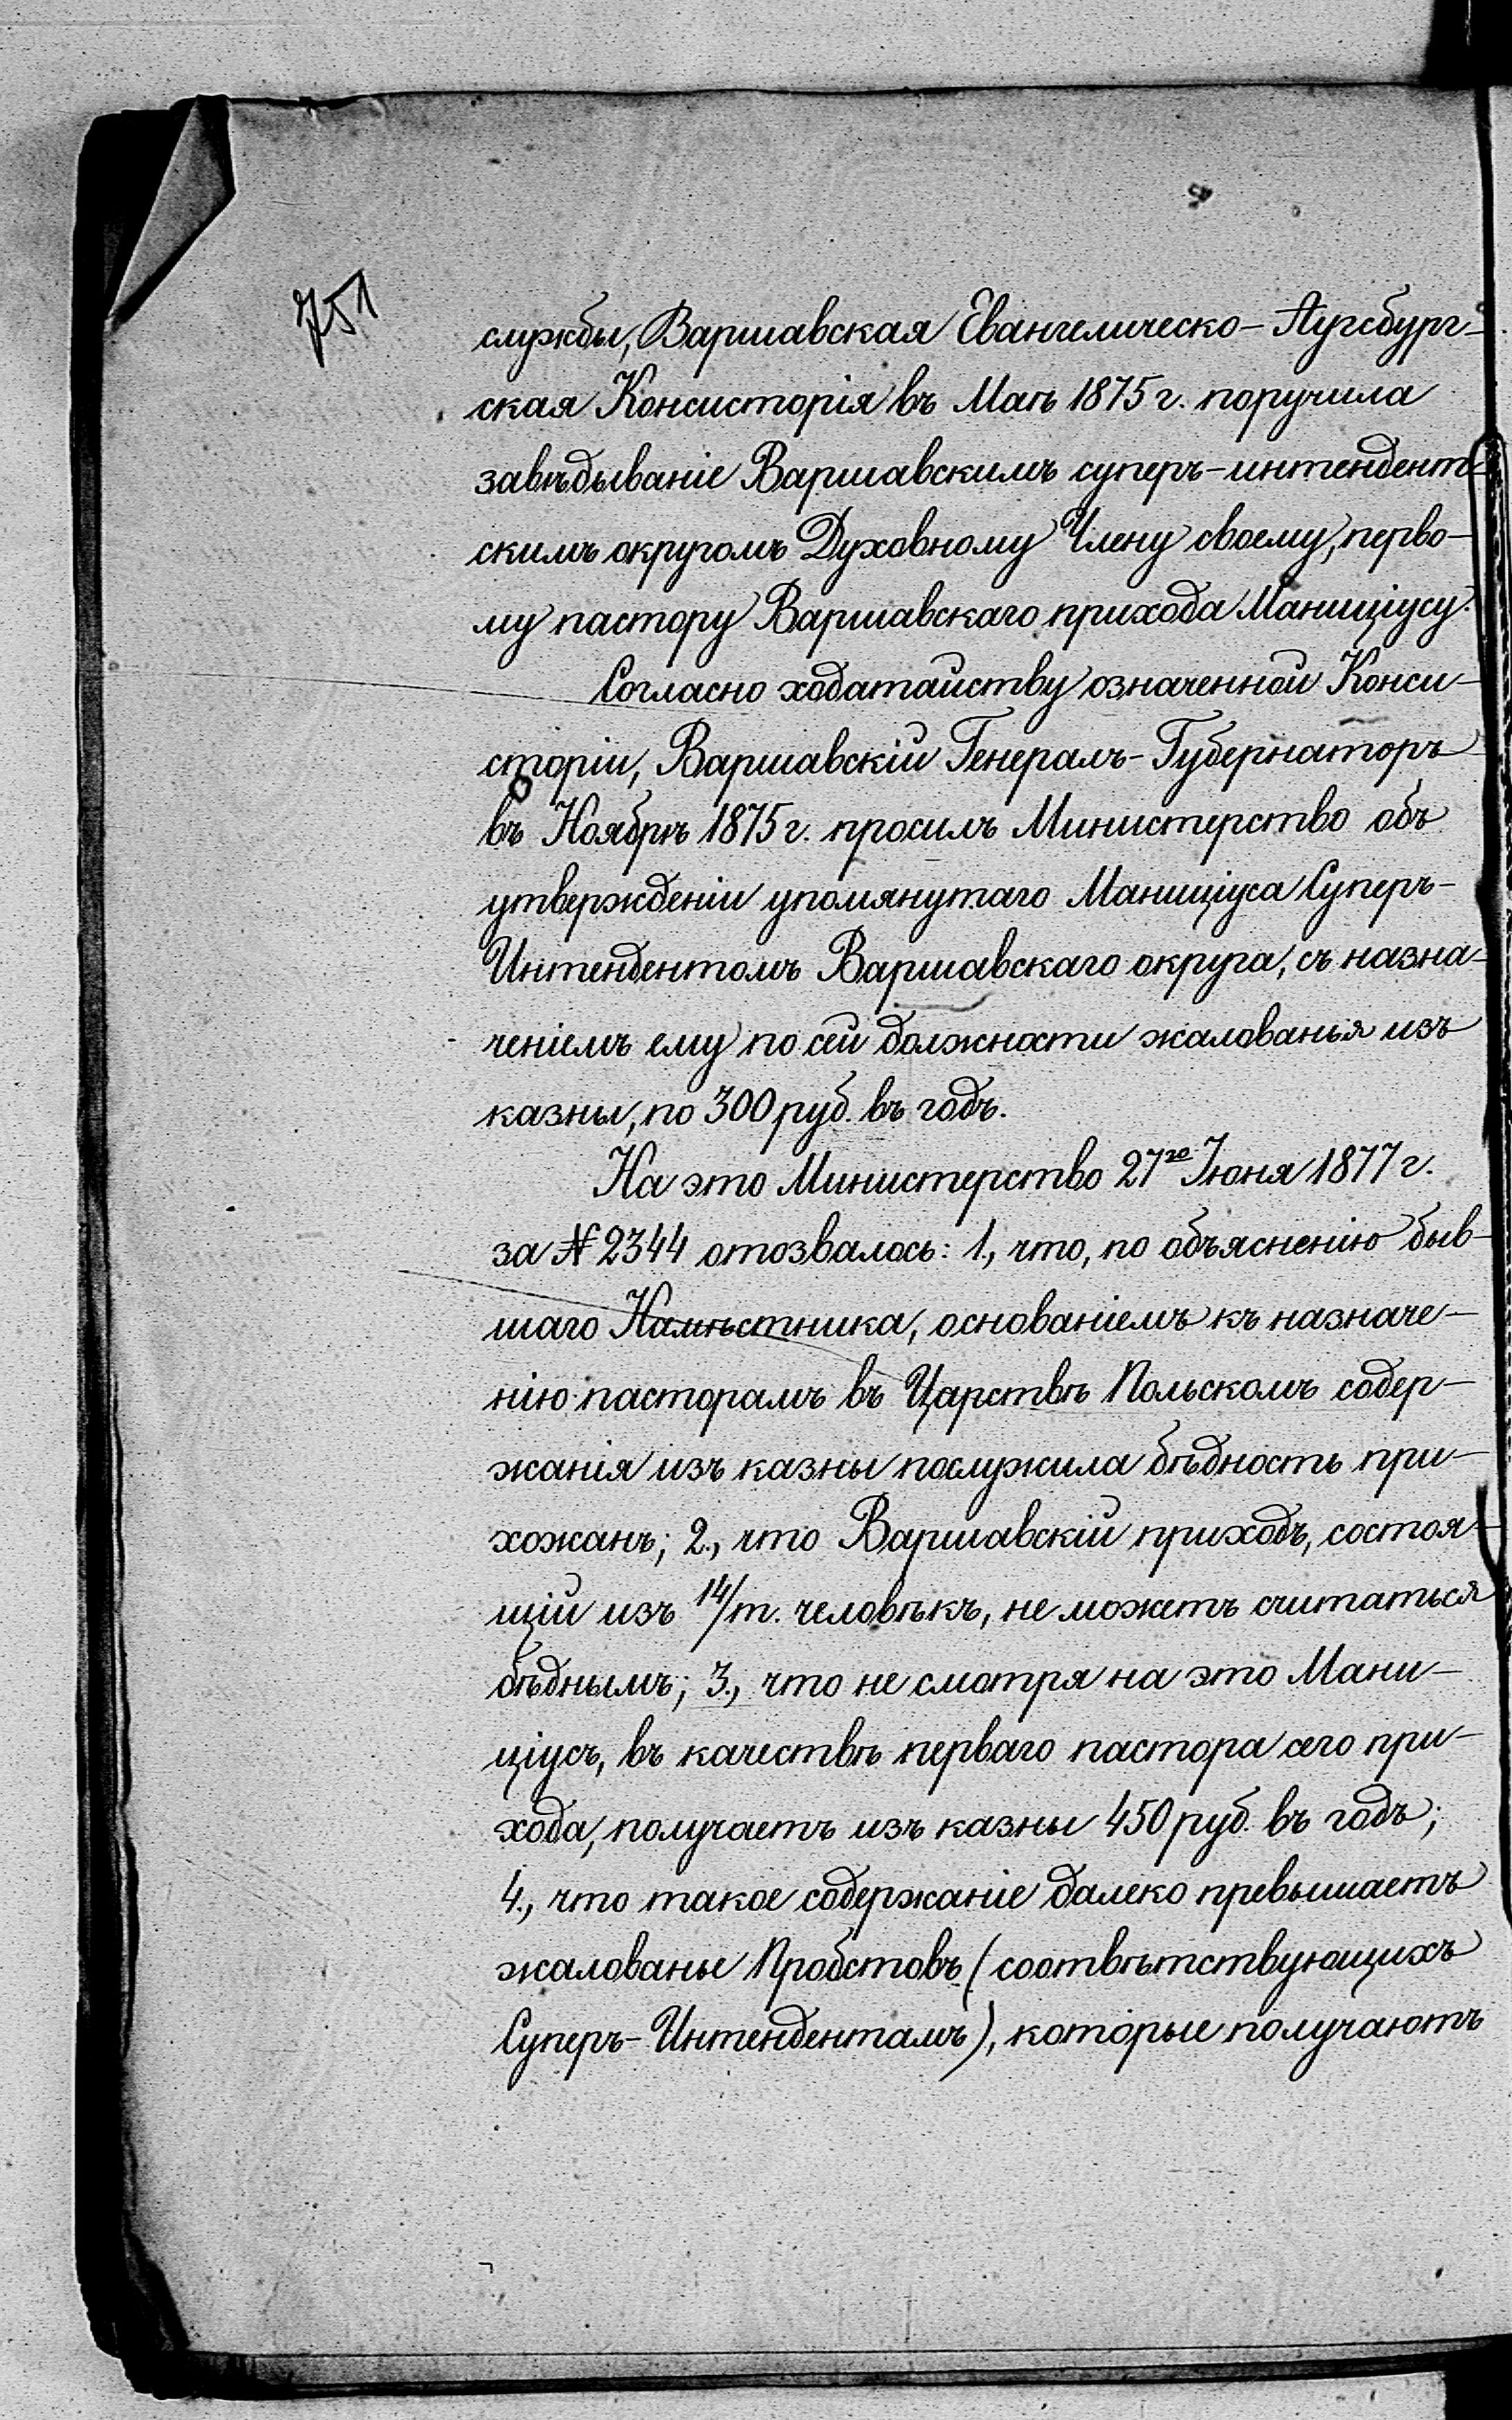 751
службы, Варшавская Евангелическо-Аугсбург-
ская Консисторія въ Маѣ 1875 г. поручила
завѣдываніе Варшавскимъ суперъ-интендент-
скимъ округомъ Духовному Члену своему, перво-
му пастору Варшавскаго прихода Маниціусу.
Согласно ходатайству означенной Конси-
сторіи, Варшавскій Генералъ-Губернаторъ
въ Ноябрѣ 1875 г. просилъ Министерство объ
утвержденіи упомянутаго Маниціуса Суперъ-
Интендентомъ Варшавскаго округа, съ назна-
ченіемъ ему по сей должности жалованья изъ
казны, по 300 руб. въ годъ.
На это Министерство 27го Іюня 1877 г.
за № 2344 отозвалось: 1., что, по объясненію быв-
шаго Намѣстника, основаніемъ къ назначе-
нію пасторамъ въ Царствѣ Польскомъ содер-
жанія изъ казны послужила бѣдность при-
хожанъ; 2., что Варшавскій приходъ, состоя-
щій изъ 14/т. человѣкъ, не можетъ считаться
бѣднымъ; 3., что не смотря на это Мани-
ціусъ, въ качествѣ перваго пастора сего при-
хода, получаетъ изъ казны 450 руб. въ годъ;
4., что такое содержаніе далеко превышаетъ
жалованье Пробстовъ (соотвѣтствующихъ
Суперъ-Интендентамъ), которые получаютъ